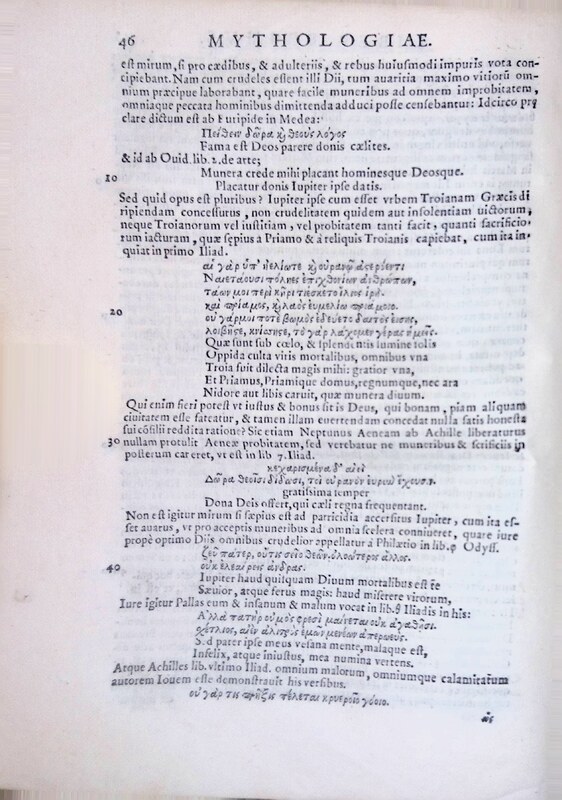 46 MYTHOLOGIAE.
est mirum, si pro cædibus, & adulteriis, & rebus huiusmodi impuris vota con-
cipiebant. Nam cum crudeles essent illi Dii, tum auaritia maximo vitiorū om-
nium præcipue laborabant, quare facile muneribus ad omnem improbitatem,
omniaque peccata hominibus dimittenda adduci posse censebantur: Idcirco prę
clare dictum est ab Euripide in Medea:
Πείθειν δῶρα κ θεοὺς λόγος
Fama est Deos parere donis cælites.
& id ab Ouid. lib. 2. de arte;
Munera crede mihi placant hominesque Deosque.
10
Placatur donis Iupiter ipse datis.
Sed quid opus est pluribus? Iupiter ipse cum esset vrbem Troianam Græcis di
ripiendam concessurus, non crudelitatem quidem aut insolentiam uictorum,
neque Troianorum vel iustitiam, vel probitatem tanti facit, quanti sacrificio-
rum iacturam, quæ sępius a Priamo & à reliquis Troianis capiebat, cum ita in-
quiat in primo Iliad.
αἱ γὰρ ὑπ' ἠελίῳτε κ οὐρανῷ ἀστερόεντι
Ναιετάουσι πόληες ἐπιχθονίων ἀνθρώπων,
τάων μοι περὶ κῆρι τιέσκετο ἴλιος ἱρὴ.
20
καὶ πρίαμος, κ λαὸς ἐυμελίω πριάμοιο.
οὐ γάρμοι ποτὲ βωμὸς ἐδεύετο δαιτὸς ἐίσης,
λοιβῆστε, κνίσσηστε, τὸ γὰρ λάχομεν γέρας ἡμεῖς.
Quæ sunt sub cœlo, & splendentis lumine solis
Oppida culta viris mortalibus, omnibus vna
Troia fuit dilecta magis mihi: gratior vna,
Et Priamus, Priamique domus, regnumque, nec ara
Nidore aut libis caruit, quæ munera diuum.
Qui enim fieri potest vt iustus & bonus sit is Deus, qui bonam, piam aliquam
ciuitatem esse fateatur, & tamen illam euertendam concedat nulla satis honesta
sui cōsilii reddita ratione? Sic etiam Neptunus Aeneam ab Achille liberaturus
30 nullam protulit Aeneæ probitatem, sed verebatur ne muneribus & scrificiis in
posterum careret, vt est in lib 7. Iliad.
κεχαρισμένα δ' αἰεὶ
Δῶρα θεοῖσι δίδωσι, τοὶ οὐρανὸν εὐρὺν ἔχουσιν.
gratissima semper
Dona Deis offert, qui cæli regna frequentant.
Non est igitur mirum si sæpius est ad parricidia accersitus Iupiter, cum ita es-
set auarus, vt pro acceptis muneribus ad omnia scelera conniueret, quare iure
propè optimo Diis omnibus crudelior appellatur à Philætio in lib. Odyss.
ζεῦ πάτερ, οὔτις σεῖο θεῶν ὀλοώτερος ἄλλος.
40
οὐκ ἐλεαίρεις ἄνδρας.
Iupiter haud quisquam Diuum mortalibus est te
Sæuior, atque ferus magis: haud miserere virorum,
Iure igitur Pallas eum & insanum & malum vocat in lib. θ Iliadis in his:
Ἀλλὰ πατὴρ οὑμὸς φρεσὶ μαίνεται οὐκ ἀγαθῇσι.
σχέτλιος, αἰὲν ἀλιτρὸς ἐμῶν μενέων ἀπερωεύς.
Sed pater ipse meus vesana mente, malaque est,
Infelix, atque iniustus, mea numina vertens.
Atque Achilles lib. vltimo Iliad. omnium malorum, omniumque calamitatum
autorem Iouem esse demonstrauit his versibus.
οὐ γάρ τις πρῆξις πέλεται κρυεροῖο γόοιο.
ὡς